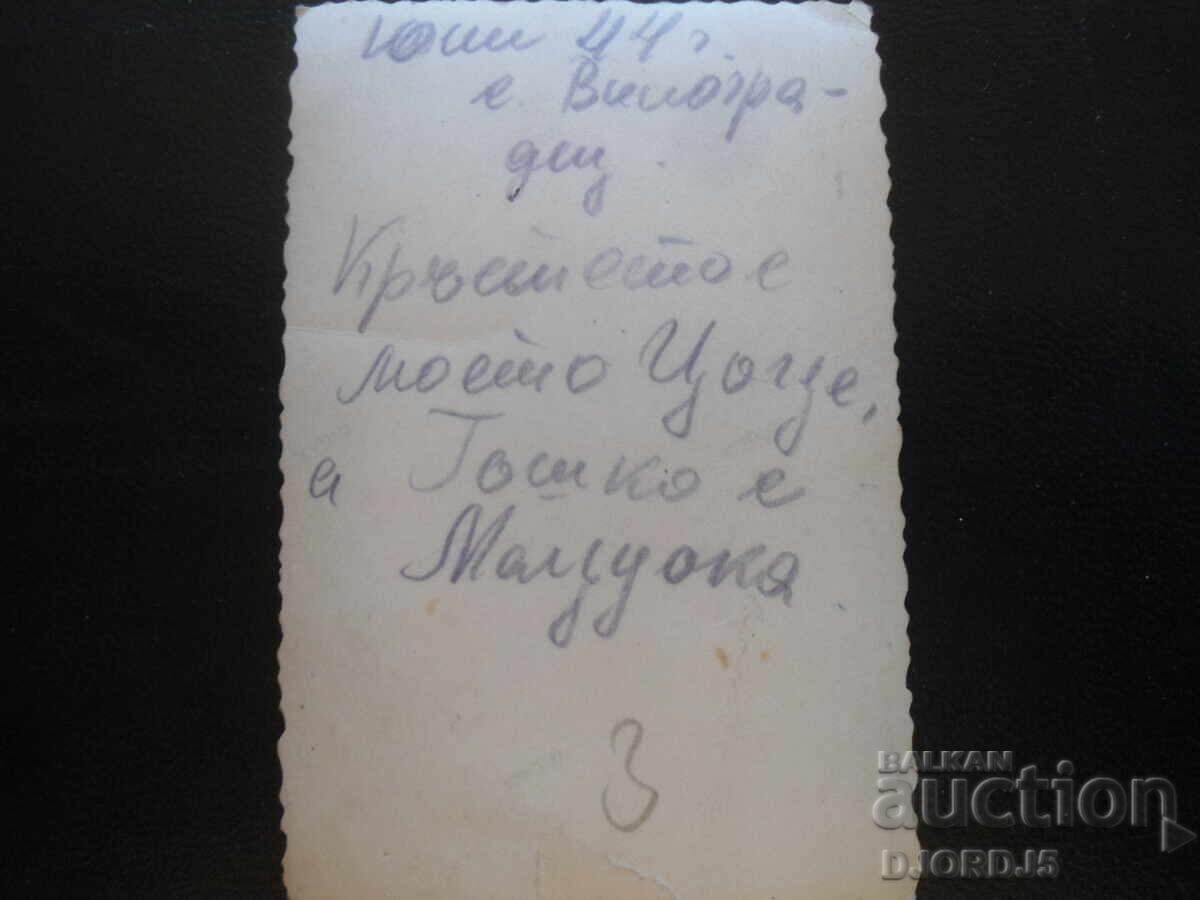 Юни 44 г.
с. Виногра-
дец.
Кръстето с
моето Цоце,
а Гошко с
Мацуока
3
BALKAN
auction
DJORDJ5